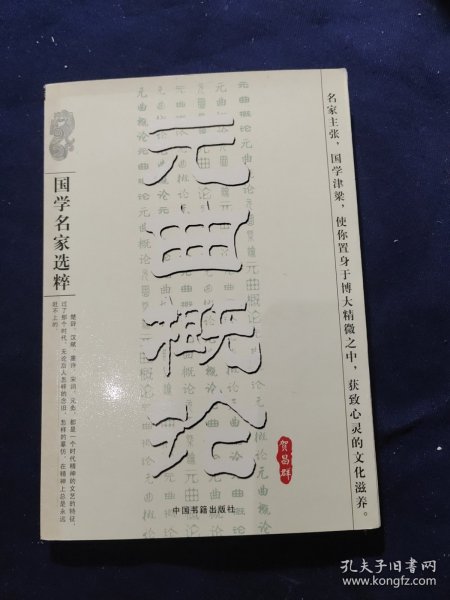 名家主张，国学津梁，使你置身于博大精微之中，获致心灵的文化滋养。
元曲概论
贺昌群
国学名家选粹
楚辞、汉赋、唐诗、宋词、元曲，都是一个时代精神的文艺的特征，
过了那个时代，无论后人怎样的念旧，怎样的摹仿，在精神上总是永远
赶不上的。
中国书籍出版社
孔夫子旧书网
www.kongfz.com